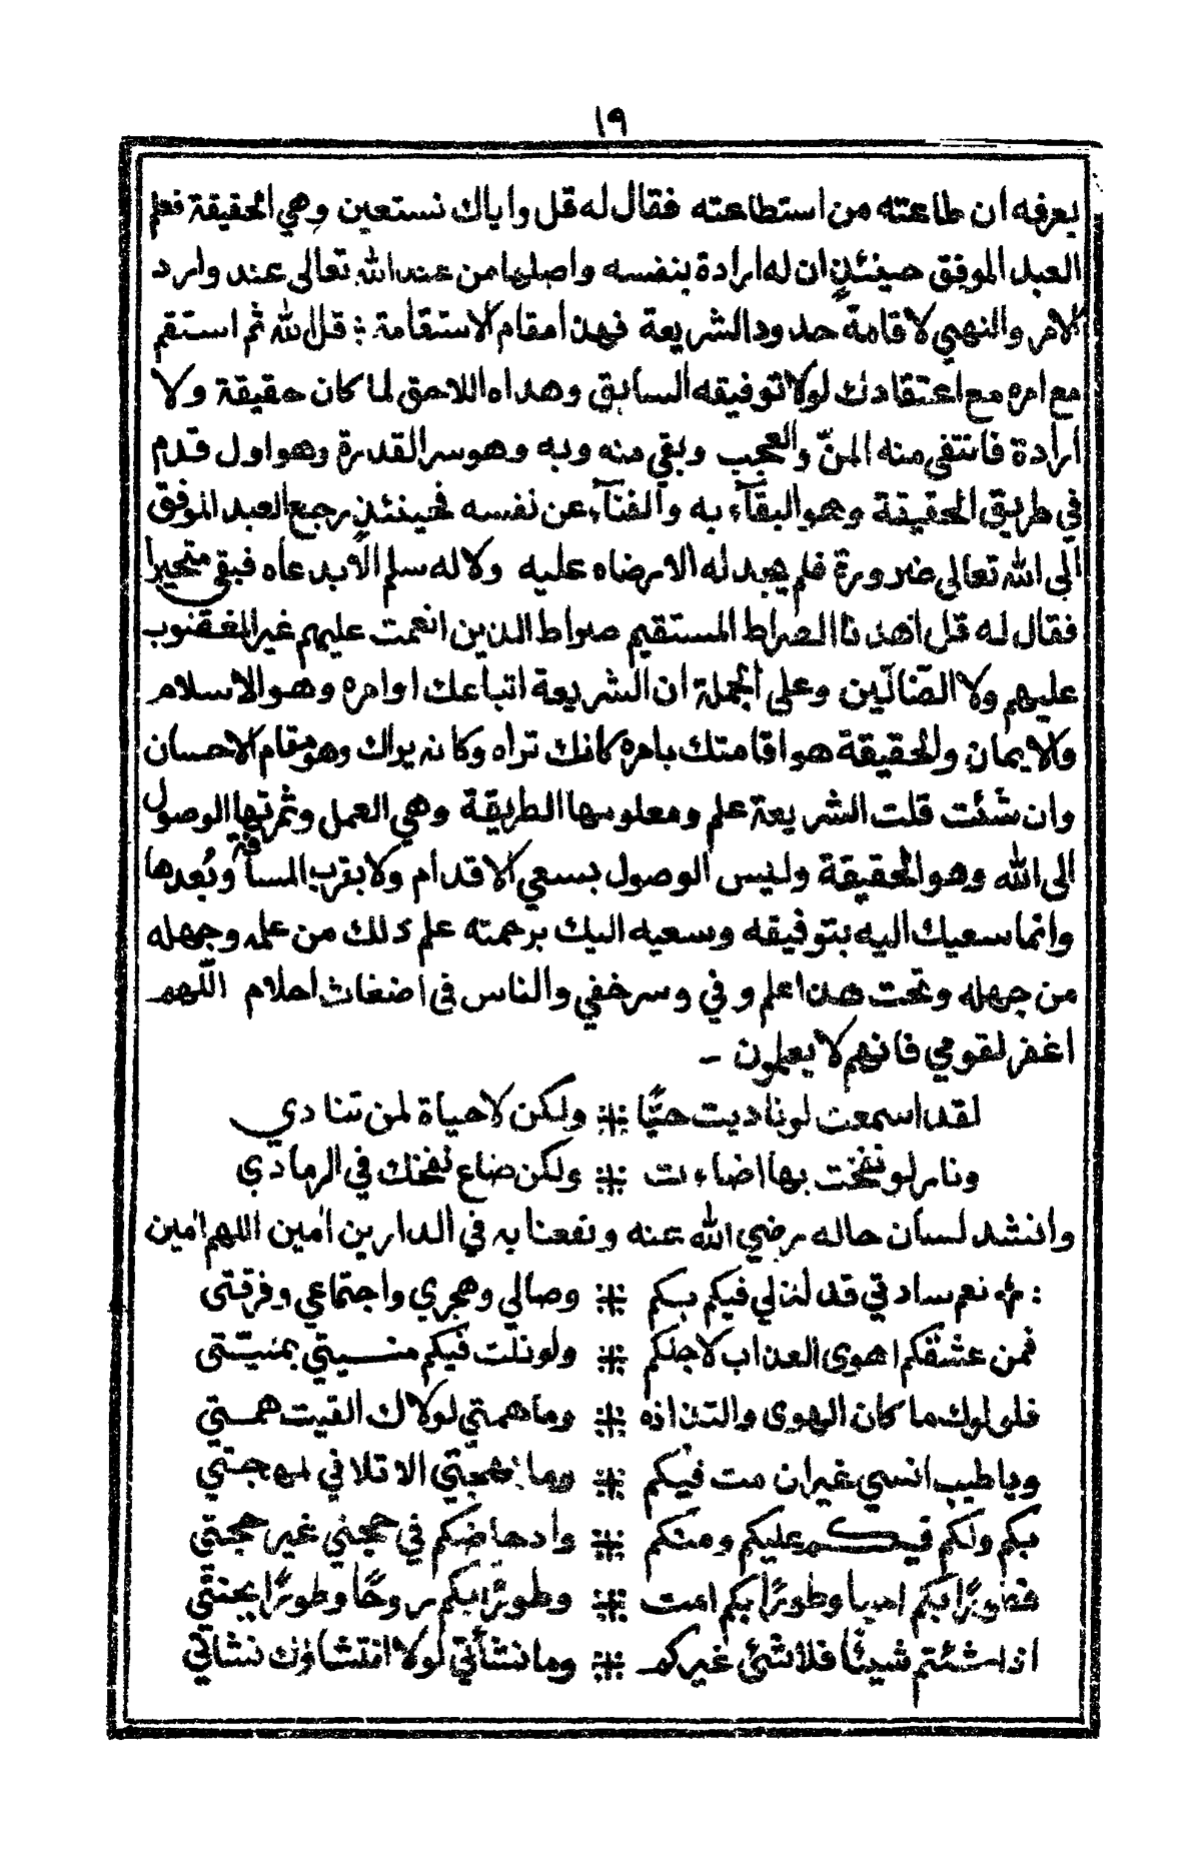 ١٩
يعرفه ان طاعته من استطاعته فقال له قل واياك نستعين وهي الحقيقة فعلم
العبد الموفق حينئذٍ ان له ارادة بنفسه واصلها من عند الله تعالى عند وارد
الامر والنهي لاقامة حدود الشريعة فهذا مقام الاستقامة قل الله ثم استقم
مع امره مع اعتقادك لولا توفيقه السابق وهداه اللاحق لما كان حقيقة ولا
ارادة فانتفى منه المنّ والعجب وبقي منه وبه وهو سر القدرة وهو اول قدم
في طريق الحقيقة وهو البقآء به والفنآء عن نفسه فحينئذٍ رجع العبد الموفق
الى الله تعالى ضرورة فلم يجد له الا رضاه عليه ولا له سلم الا بدعاه فبقي متحيرا
فقال له قل اهدنا الصراط المستقيم صراط الذين انعمت عليهم غير المغضوب
عليهم ولا الضّالّين وعلى الجملة ان الشريعة اتباعك اوامره وهو الاسلام
والايمان والحقيقة هو اقامتك بامره كانك تراه وكانه يراك وهو مقام الاحسان
وان شئت قلت الشريعة علم ومعلومها الطريقة وهي العمل وثمرتها الوصول
الى الله وهو الحقيقة وليس الوصول بسعي الاقدام ولا بقرب المسافة وبُعدها
وانما سعيك اليه بتوفيقه وسعيه اليك برحمته علم ذلك من علمه وجهله
من جهله وتحت هذا علم وفي وسر خفي والناس في اضغاث احلام اللهم
اغفر لقومي فانهم لا يعلمون -
لقد اسمعت لو ناديت حيًّا ولكن لا حياة لمن تنادي
ونار لو نفخت بها اضاءت ولكن ضاع نفخك في الرمادي
وانشد لسان حاله رضي الله عنه ونفعنا به في الدارين امين اللهم امين
نعم سادتي قد لذ لي فيكم بكم وصالي وهجري واجتماعي وفرقتي
فمن عشقكم اهوى العذاب لاجلكم ولو نلت فيكم منيتي بمنيّتي
فلولوك ما كان الهوى والتذاذه وما همتي لولاك القيت همتي
ويا طيب انسي غير ان مت فيكم وما بهجتي الا تلافي لمهجتي
بكم ولكم فيكم عليكم ومنكم وادحاضكم في حجتي غير حجتي
فطورًا بكم احيا وطورًا بكم امت وطورًا بكم روحًا وطورًا بجنتي
اذا شئتم شيئًا فلا شئ غيركم وما نشأتي لولا انتشاؤك نشاتي